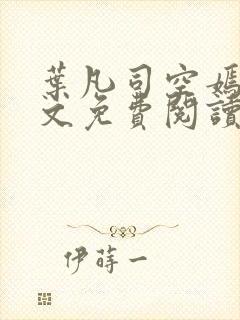 葉凡司空嫣
文免費閱讀
伊蒔一